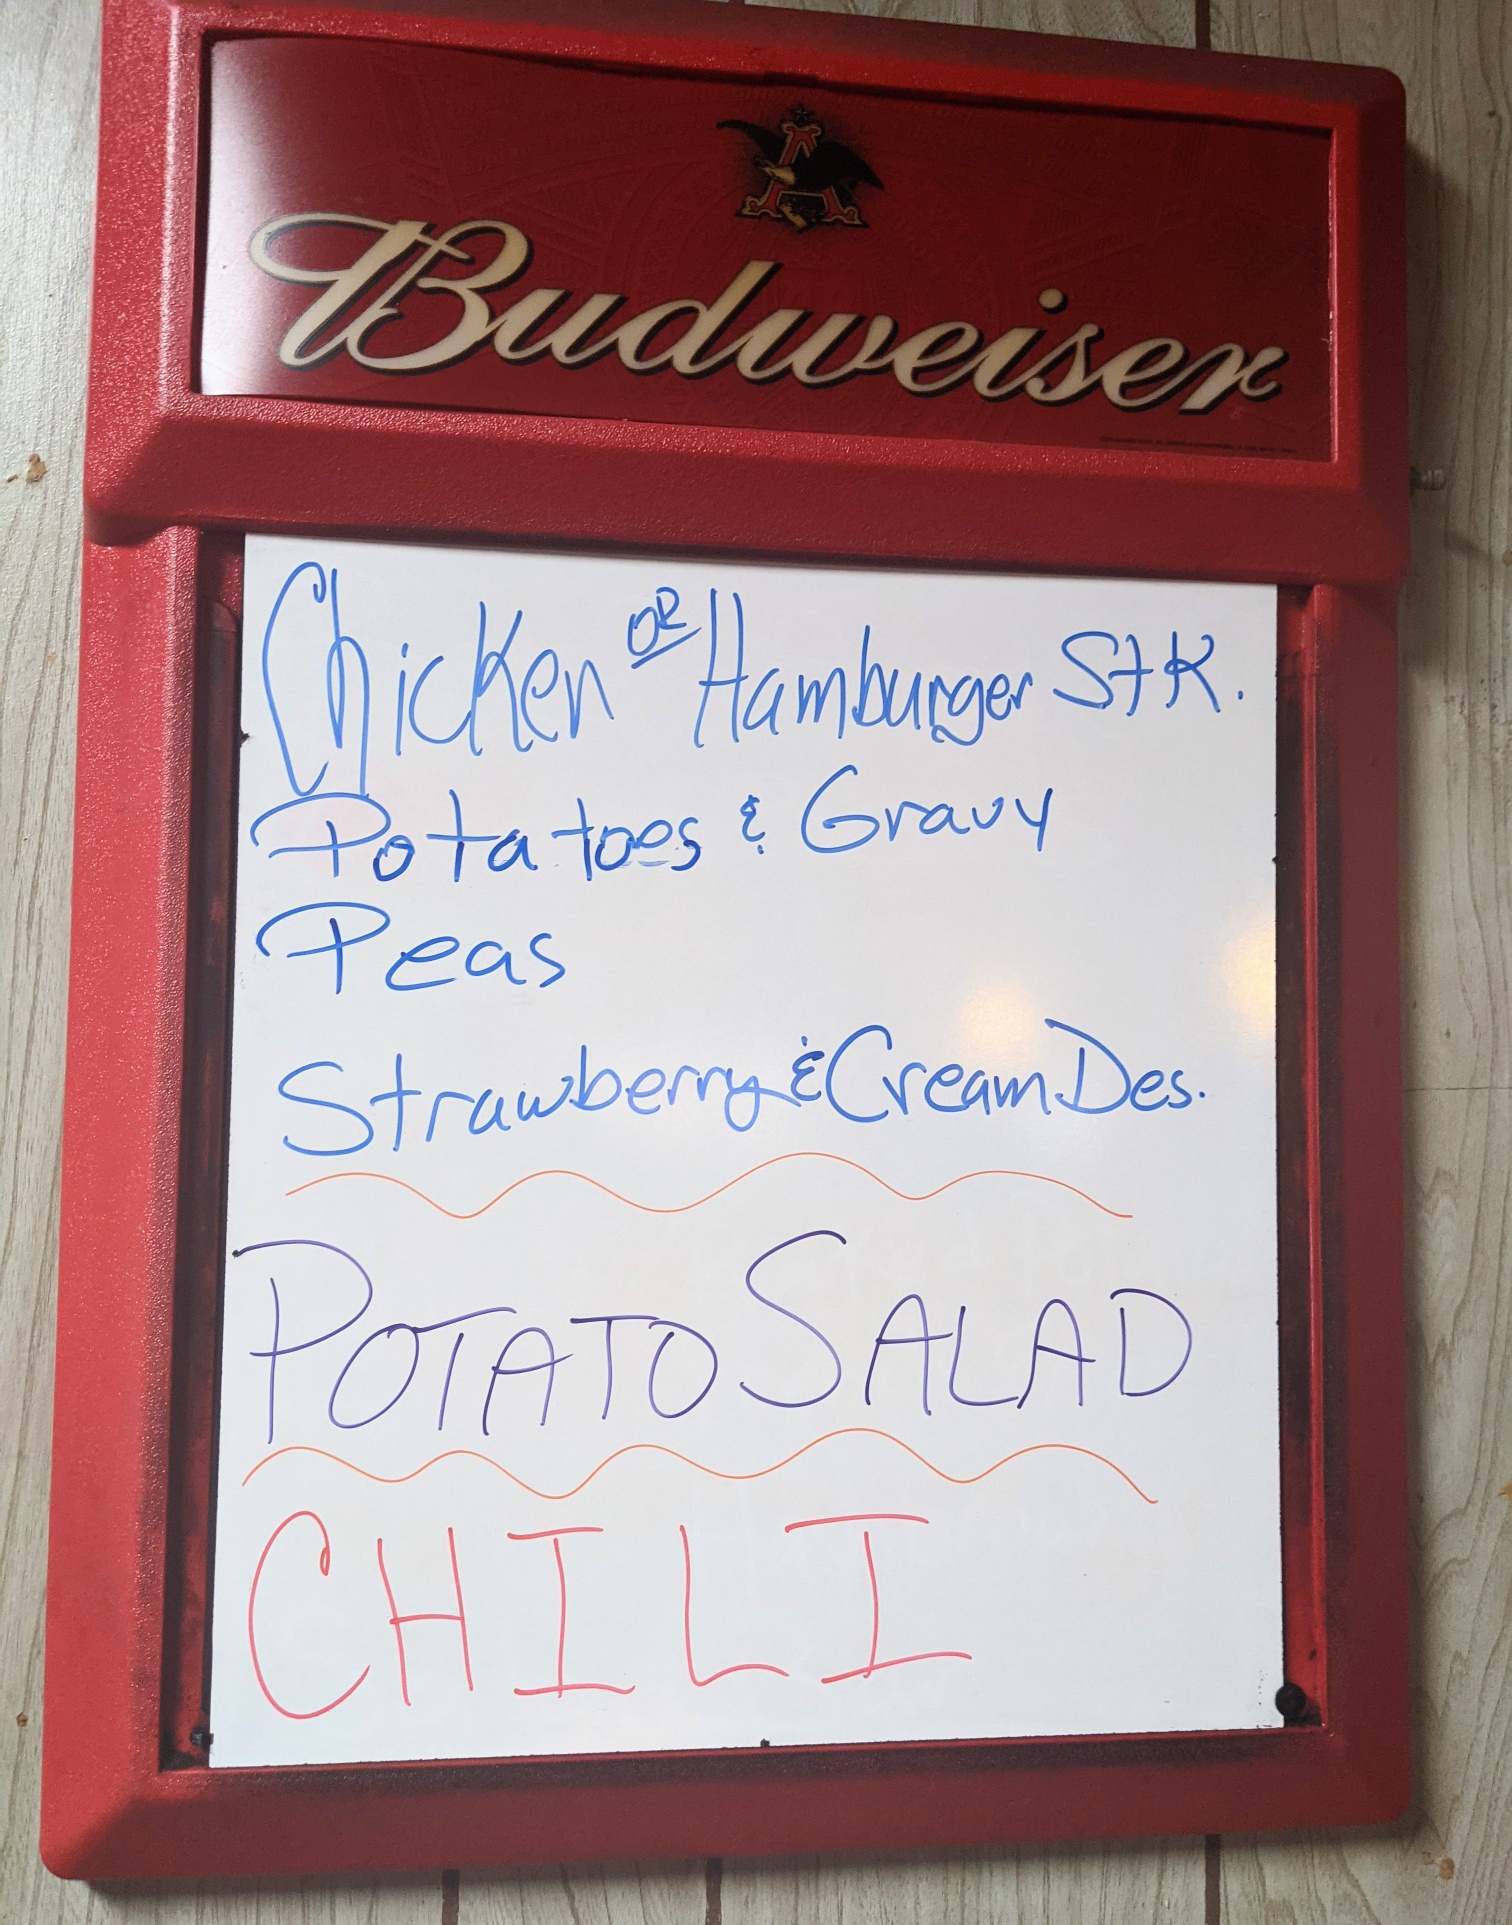 Budweiser
Chicken OR Hamburger StK.
Potatoes & Gravy
Peas
Strawberry & Cream Des.
POTATO SALAD
CHILI